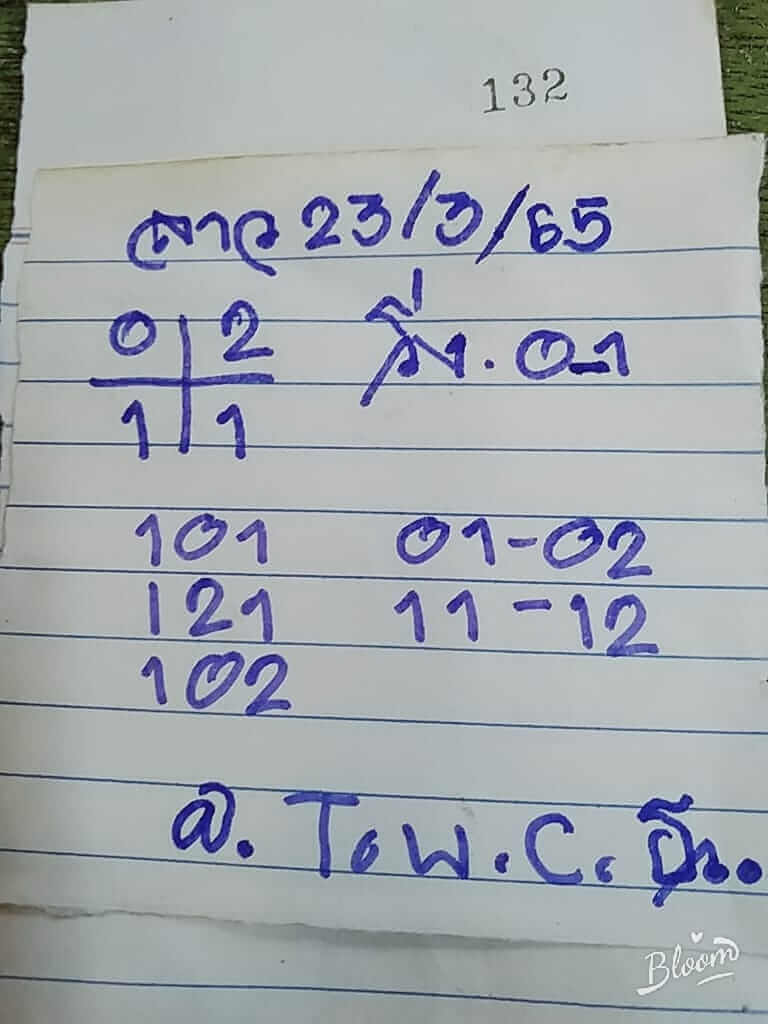 132
ลาว 23/3/65
0 2 วิ่ง. 0-1
1 1
101 01-02
121 11-12
102
อ. T.W.C.
Bloom